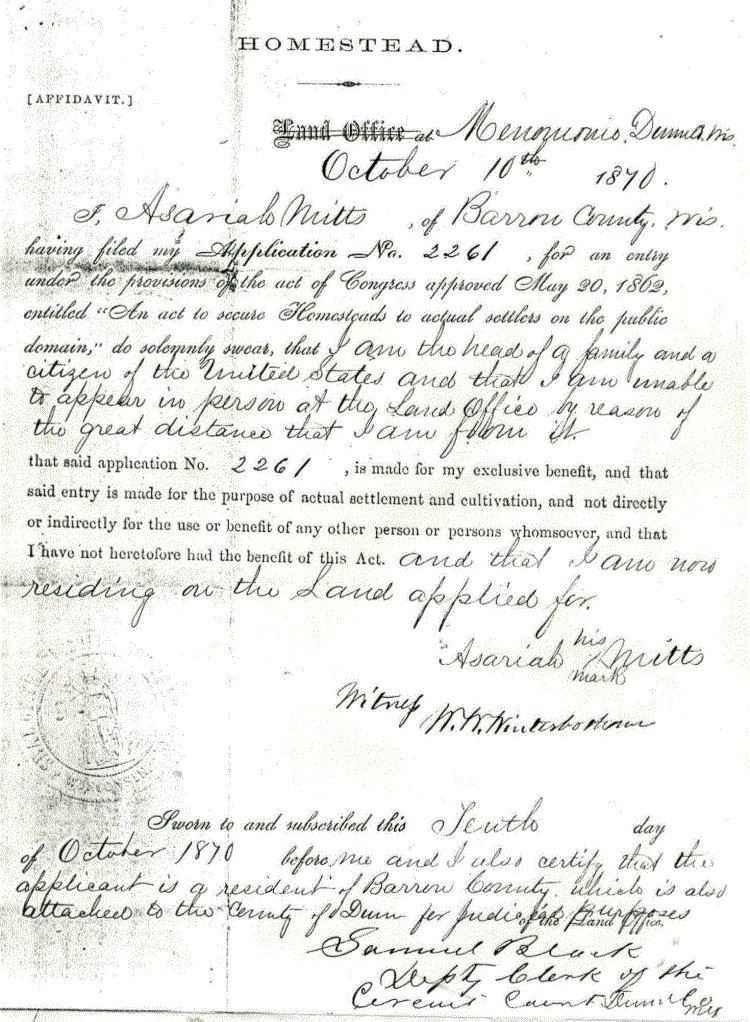 HOMESTEAD.
[AFFIDAVIT.]
Land Office at Menomonie, Dunn Co. Wis.
October 10th 1870.
I, Asariah Mitts, of Barron County, Wis.
having filed my Application No. 2261, for an entry
under the provisions of the act of Congress approved May 20, 1862,
entitled "An act to secure Homesteads to actual settlers on the public
domain," do solemnly swear, that I am the head of a family and a
citizen of the United States and that I am unable
to appear in person at the Land Office by reason of
the great distance that I am from it.
that said application No. 2261, is made for my exclusive benefit, and that
said entry is made for the purpose of actual settlement and cultivation, and not directly
or indirectly for the use or benefit of any other person or persons whomsoever, and that
I have not heretofore had the benefit of this Act. and that I am now
residing on the Land applied for.
his
Asariah x Mitts
mark
Witness W. W. Winterbotham
Sworn to and subscribed this Tenth day
of October 1870 before me and I also certify that the
applicant is a resident of Barron County, which is also
attached to the County of Dunn for Judicial purposes
of the Land Office.
Samuel Black
Depty Clerk of the
Circuit Court Dunn Co
Wis